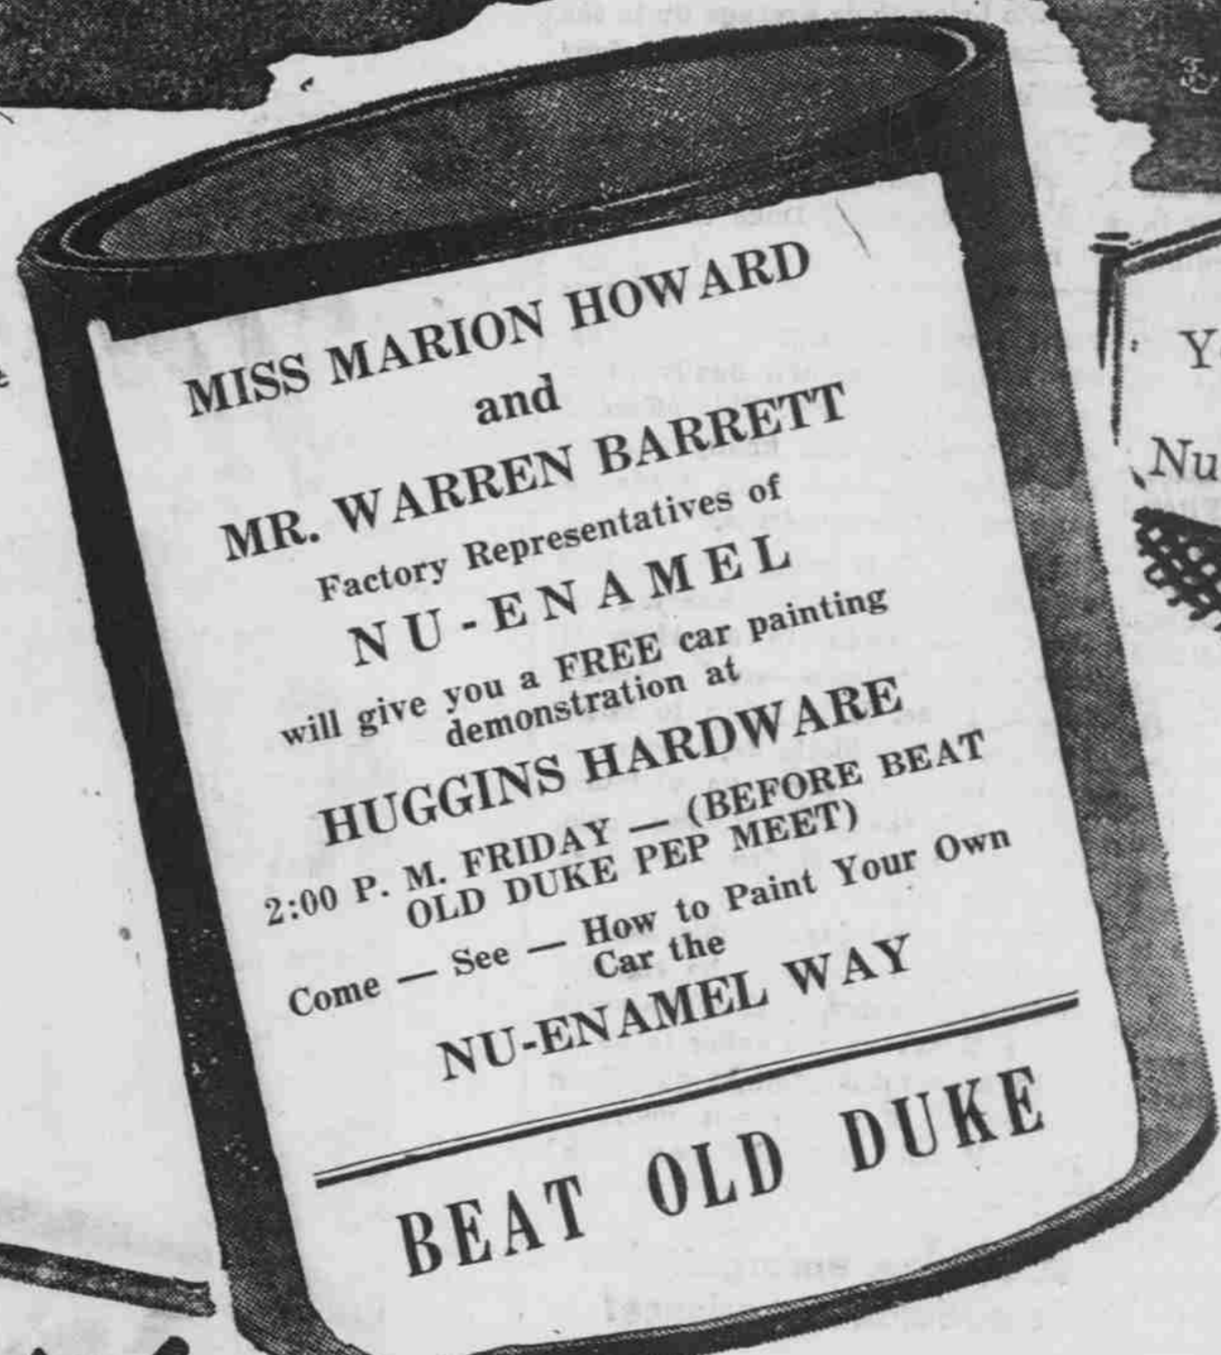 MISS MARION HOWARD
and
MR. WARREN BARRETT
Factory Representatives of
NU-ENAMEL
will give you a FREE car painting
demonstration at
HUGGINS HARDWARE
2:00 P. M. FRIDAY — (BEFORE BEAT
OLD DUKE PEP MEET)
Come — See — How to Paint Your Own
Car the
NU-ENAMEL WAY
BEAT OLD DUKE
Nu